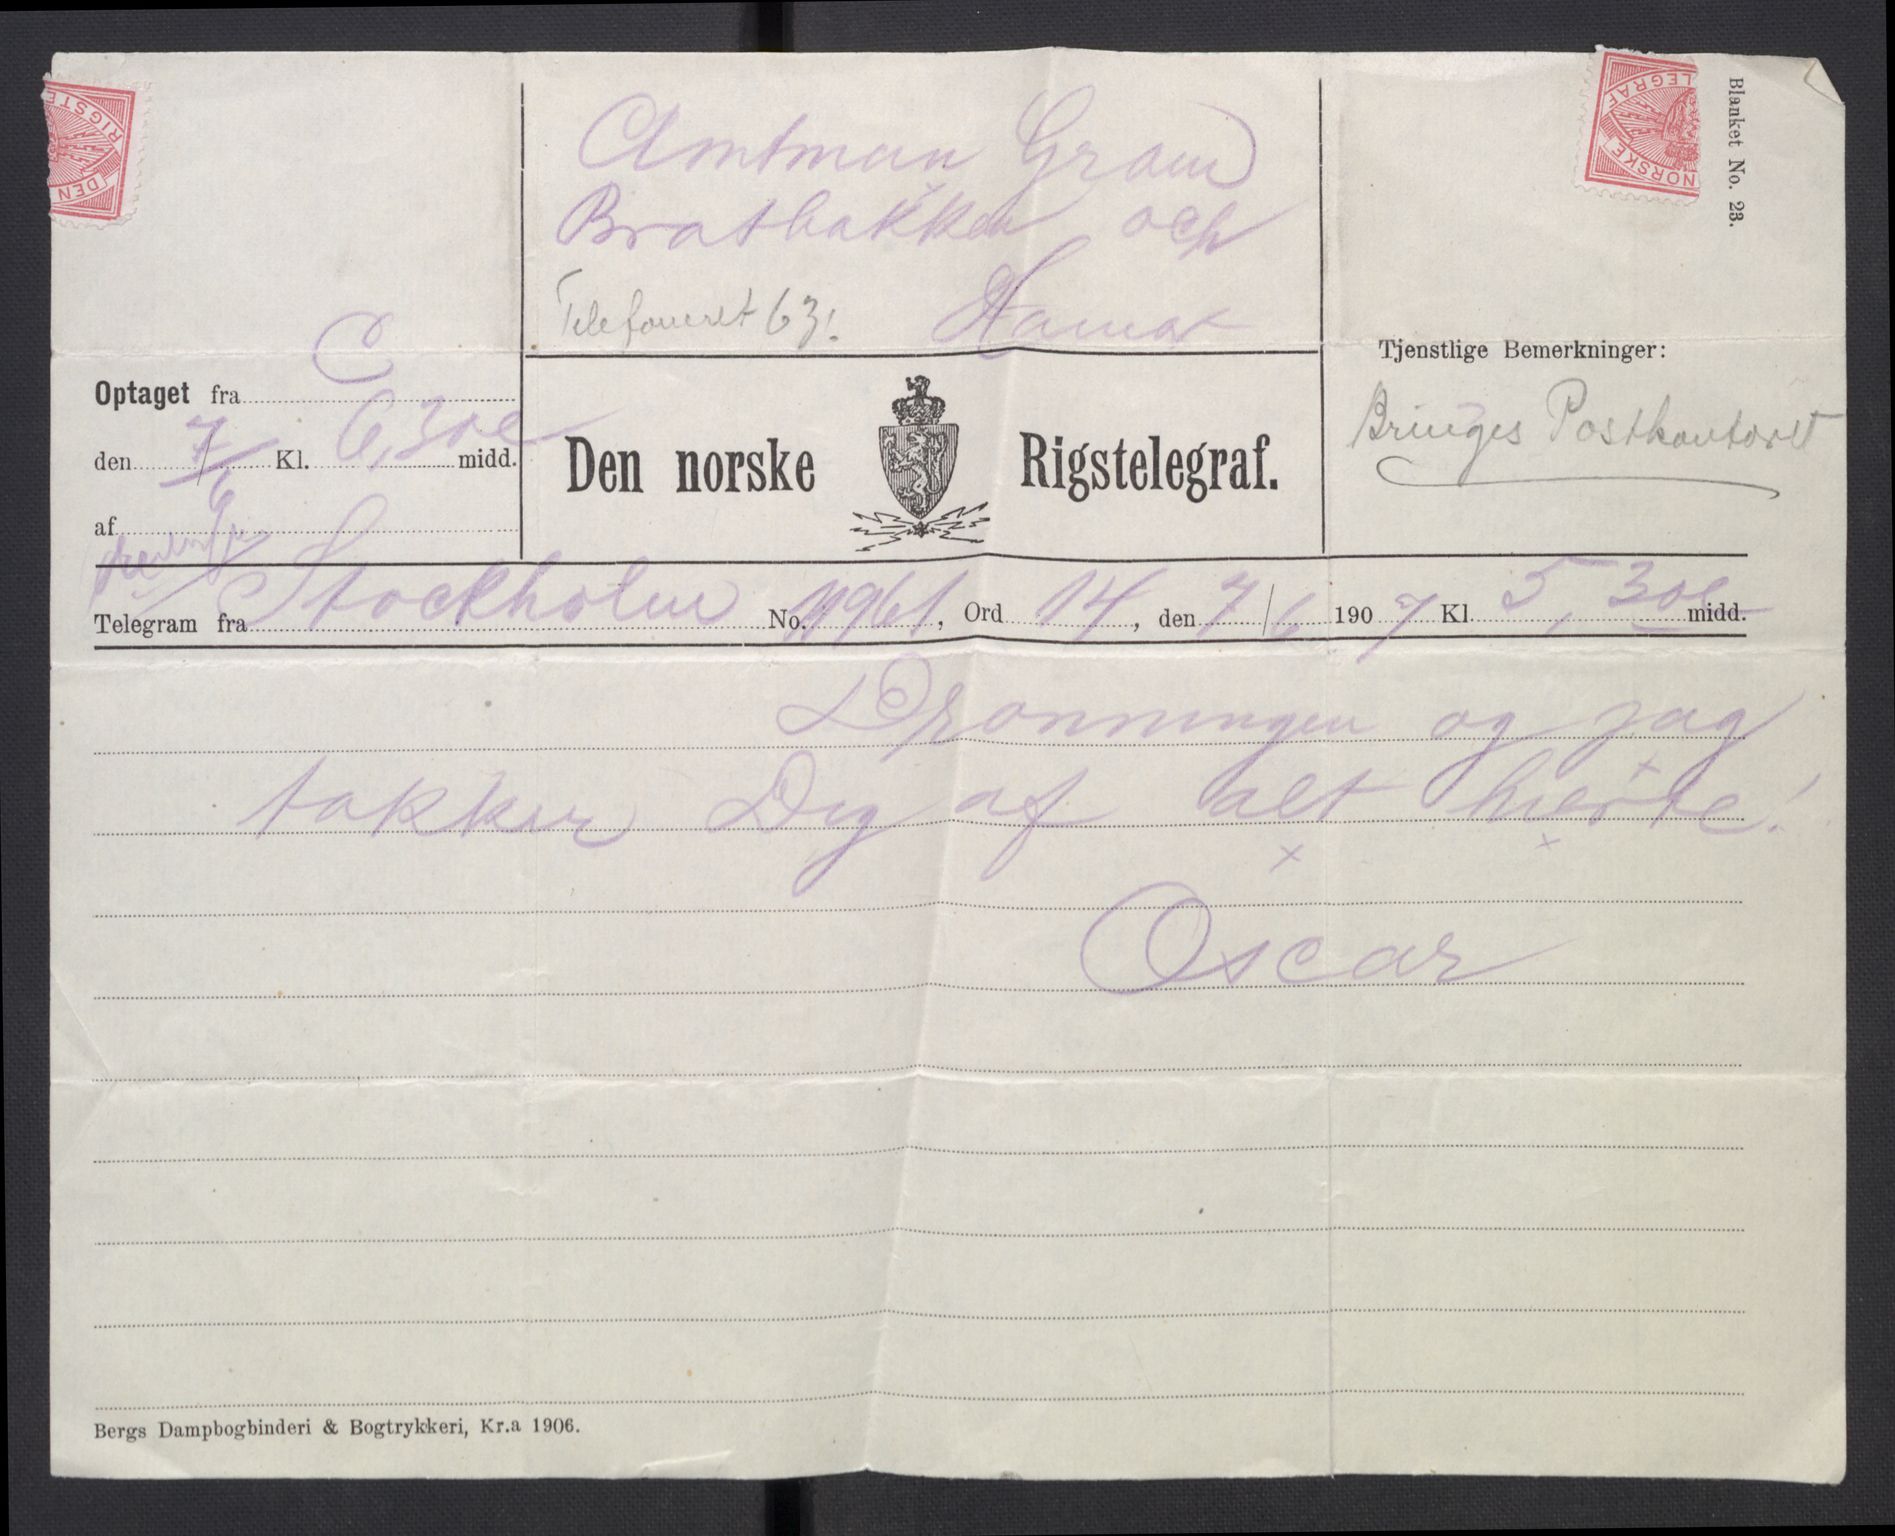 DEN
RIGSTE
NORSKE
LEGRAF
Blanket No. 23.
Amtman Gram
Bratbakken och
Telefoneret 63! Hamar
Optaget fra C
den 7/6 Kl. 6,30 e midd.
af
Den norske Rigstelegraf.
Tjenstlige Bemerkninger:
Bringes Postkontoret
Telegram fra Stockholm No. 11961, Ord 14, den 7/6 1907 Kl 5,30 e midd.
Dronningen og jag
takker Dig af alt hierte!
Oscar
Bergs Dampbogbinderi & Bogtrykkeri, Kr.a 1906.